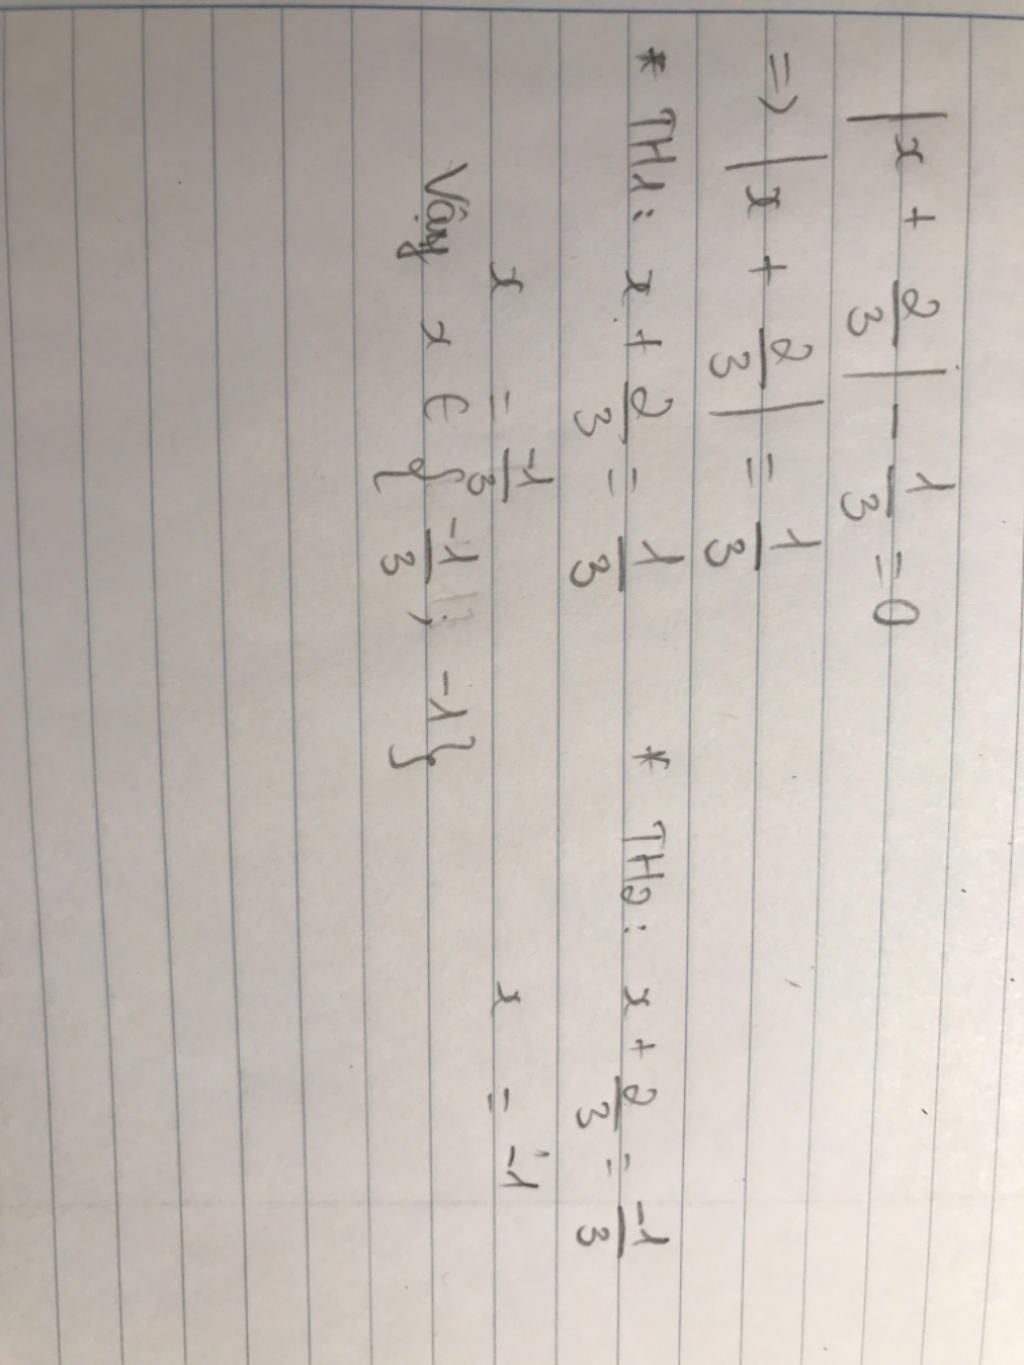 |x + 2/3| - 1/3 = 0
=> |x + 2/3| = 1/3
* TH1: x + 2/3 = 1/3 * TH2: x + 2/3 = -1/3
x = -1/3 x = -1
Vậy x ∈ { -1/3 ; -1}